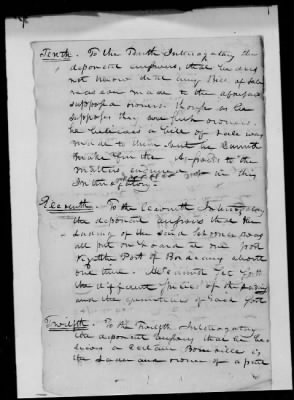 Tenth. To the Tenth Interrogatory the
deponent answers, that he does
not know that any Bill of Sale
was
made to the aforesaid
supposed owners. Though as he
supposes they are such owners,
he believes a bill of sale was
made to them but he cannot
As to the
matters enquired
in this
Interrogatory.
Eleventh. To the Eleventh Interrogatory
the deponent answers that the
Lading of the said Schooner was
all put on board in one port
the Port of Bordeaux about
one time. He cannot
the different species of the lading
and the quantities of each
Twelfth. To the Twelfth Interrogatory
the deponent answers that he be-
lieves a certain
is
the Lader and owner of a part